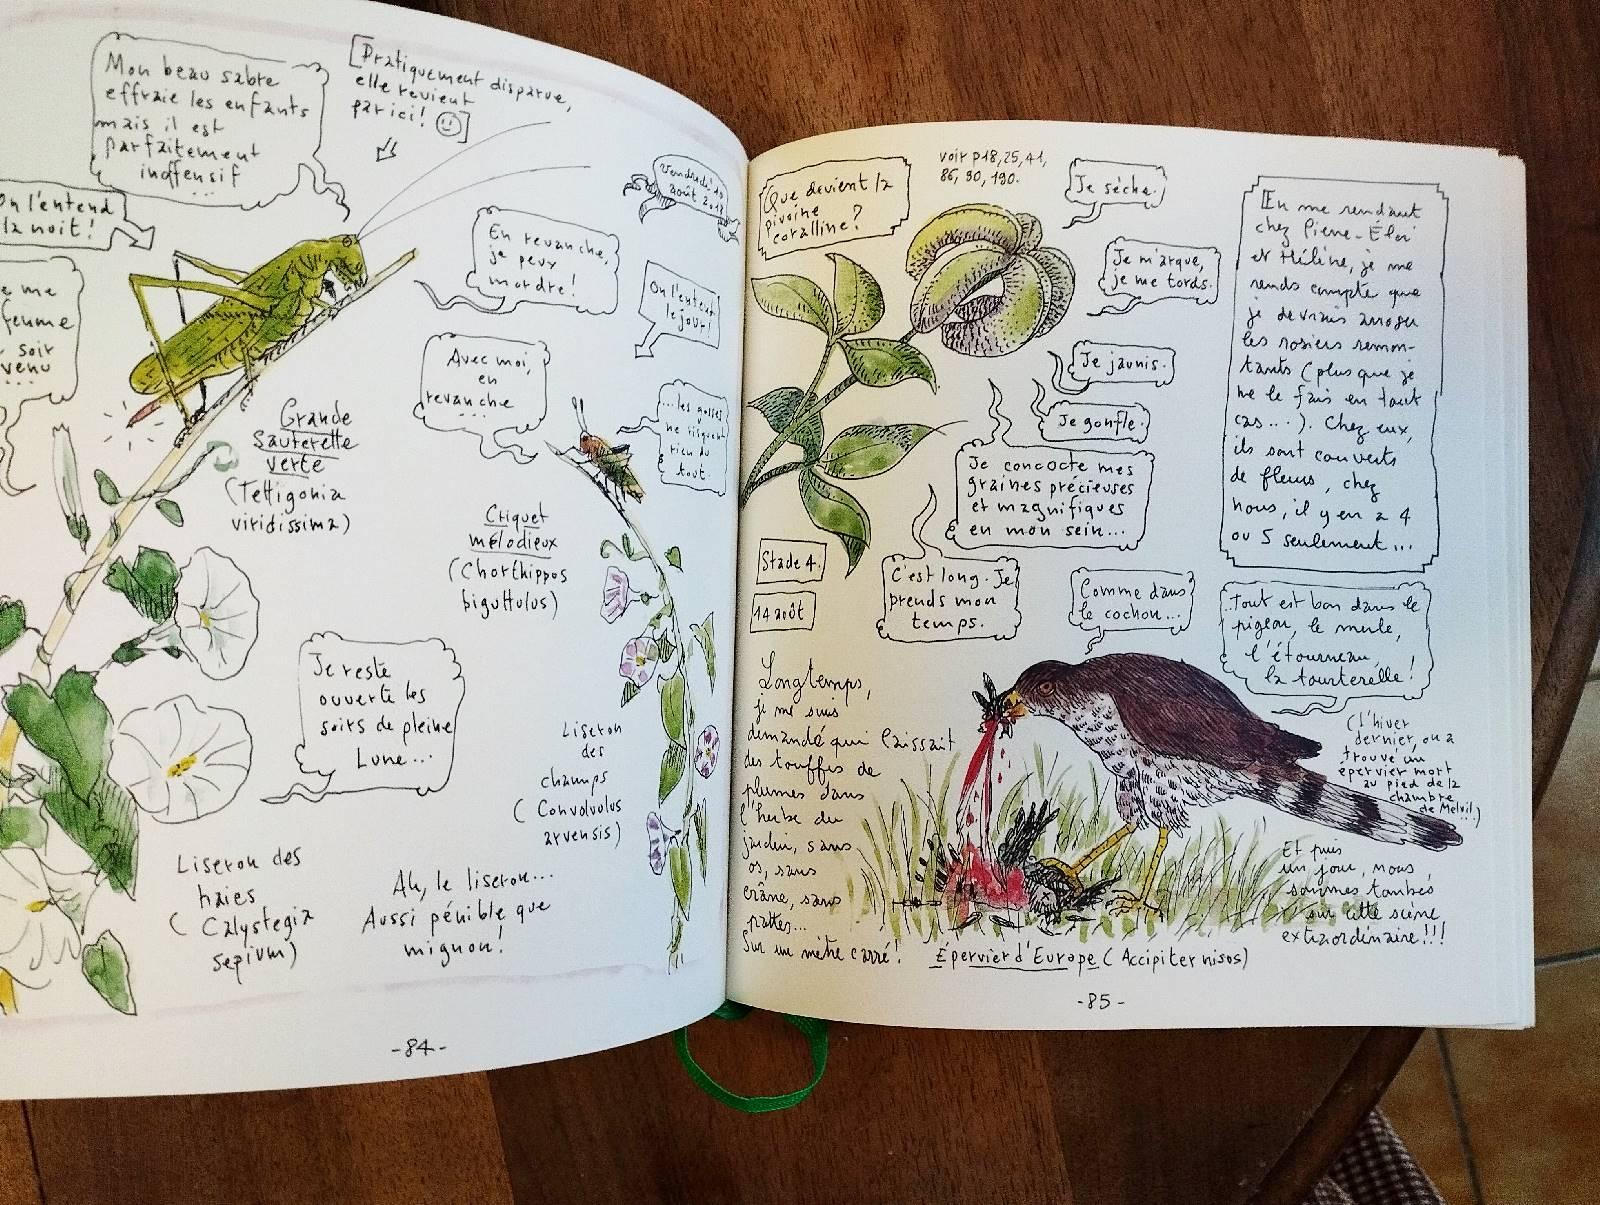 Mon beau sabre
effraie les enfants
mais il est
parfaitement
inoffensif
...
[Pratiquement disparue,
elle revient
par ici! ]
On l'entend
la nuit!
me
ferme
soir
venu
...
Vendredi 10
août
En revanche,
je peux
mordre!
On l'entend
le jour!
Avec moi,
en
revanche
...
...les gosses
ne risquent
rien du
tout.
Grande
Sauterelle
verte
(Tettigonia
viridissima)
Criquet
mélodieux
(Chorthippos
biguttulus)
Je reste
ouverte les
soirs de pleine
Lune...
Liseron
des
champs
(Convolvulus
arvensis)
Liseron des
haies
(Calystegia
sepium)
Ah, le liseron...
Aussi pénible que
mignon!
-84-
Que devient la
pivoine
coralline?
voir p18, 25, 41,
86, 90, 190.
Je sèche.
Je m'arque,
je me tords.
Je jaunis.
Je gonfle.
Je concocte mes
graines précieuses
et magnifiques
en mon sein...
C'est long. Je
prends mon
temps.
Stade 4.
14 août
[En me rendant
chez Pierre-Éloi
et Hélène, je me
rends compte que
je devrais arroser
les rosiers remon-
tants (plus que je
ne le fais en tout
cas...). Chez eux,
ils sont couverts
de fleurs, chez
nous, il y en a 4
ou 5 seulement...
Comme dans
le cochon...
Tout est bon dans le
pigeon, le merle,
l'étourneau,
la tourterelle!
Longtemps,
je me suis
demandé qui laissait
des touffes de
plumes dans
l'herbe du
jardin, sans
os, sans
crâne, sans
pattes...
Sur un mètre carré!
(l'hiver
dernier, on a
trouvé un
épervier mort
au pied de la
chambre
de Melvil!)
Et puis
un jour, nous
sommes tombés
sur cette scène
extraordinaire!!!
Épervier d'Europe (Accipiter nisos)
-85-